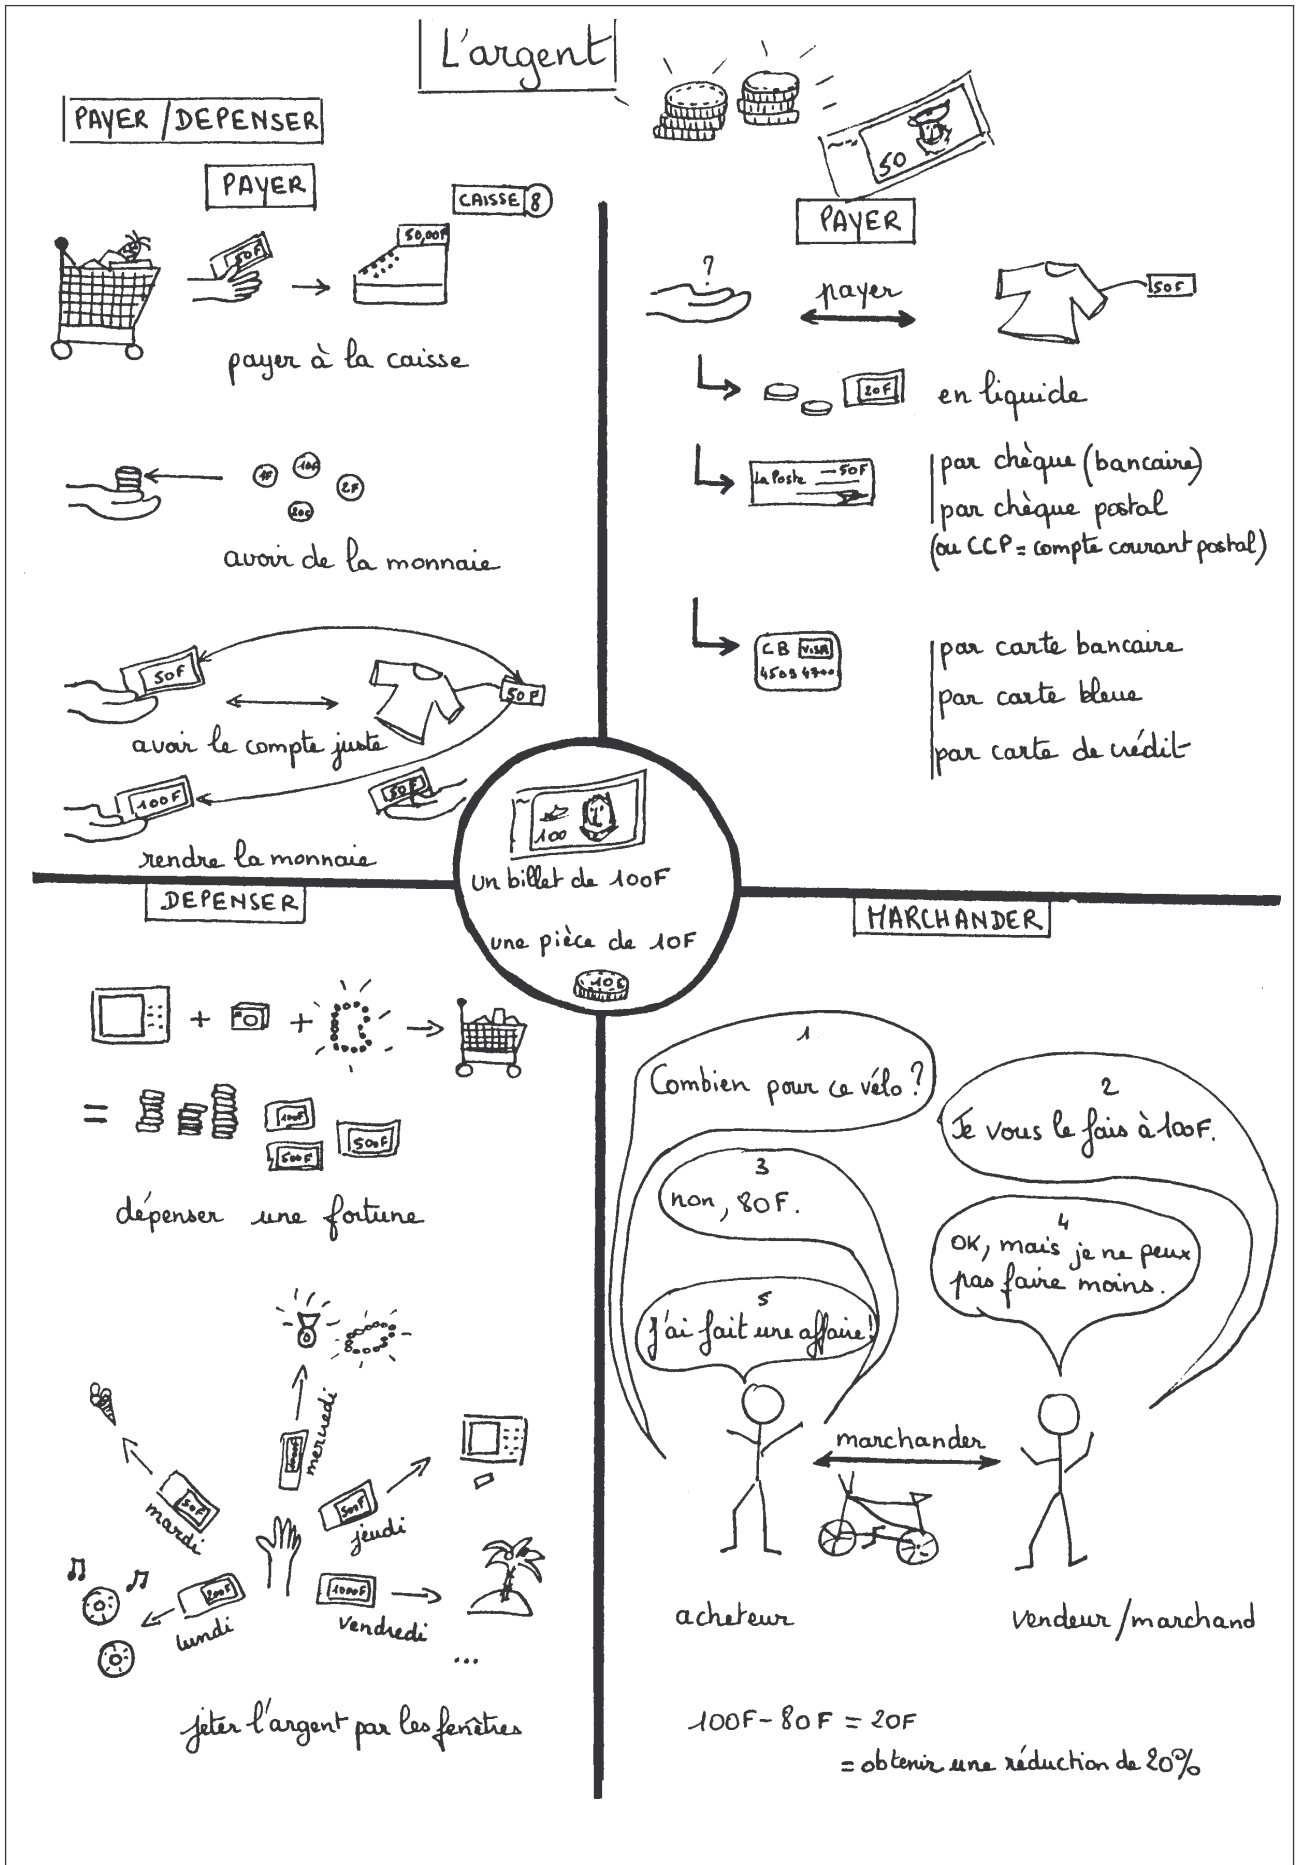 L'argent
50
PAYER / DEPENSER
PAYER
CAISSE 8
50F
50,00F
payer à la caisse
1F
10F
2F
20c
avoir de la monnaie
50F
50F
avoir le compte juste
100F
50F
rendre la monnaie
PAYER
?
payer
50F
20F
en liquide
La Poste 50F
par chèque (bancaire)
par chèque postal
(ou CCP = compte courant postal)
CB VISA
par carte bancaire
par carte bleue
par carte de crédit
100
un billet de 100F
une pièce de 10F
10F
DEPENSER
+ + 
= 100F
500F 500F
dépenser une fortune
mercredi
50F
mardi
500F
jeudi
200F
lundi
1000F
vendredi
...
jeter l'argent par les fenêtres
MARCHANDER
1
Combien pour ce vélo ?
2
Je vous le fais à 100F.
3
non, 80F.
4
OK, mais je ne peux
pas faire moins.
5
J'ai fait une affaire!
marchander
acheteur
vendeur / marchand
100F - 80F = 20F
= obtenir une réduction de 20%